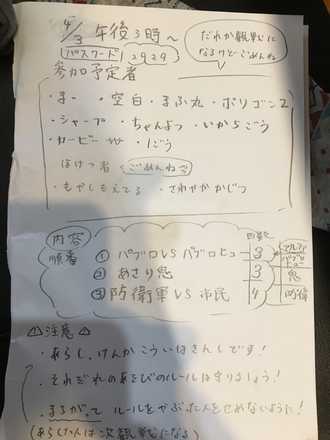 4/3 午後3時〜
パスワード 2929
だれか観戦に
なるけどごめんね
参加予定者
・まー ・空白・まふ丸・ポリゴンZ
・シャープ ・ちゃんよつ・いか5ごう
・カービー ・1ごう
ほけつ者 ごめんね
・もやしもえてる ・さわやかかじつ
内容
順番
回数
① パブロVSパブロヒュー 3
② あさり鬼 3 鬼
③ 防衛軍VS市民 4 防衛
⚠注意⚠
・あらし、けんかこういはきんしです!
・それぞれのあそびのルールは守りましょう!
・まちがって ルールをやぶった人をせめないように!
(あらした人は次観戦になる)